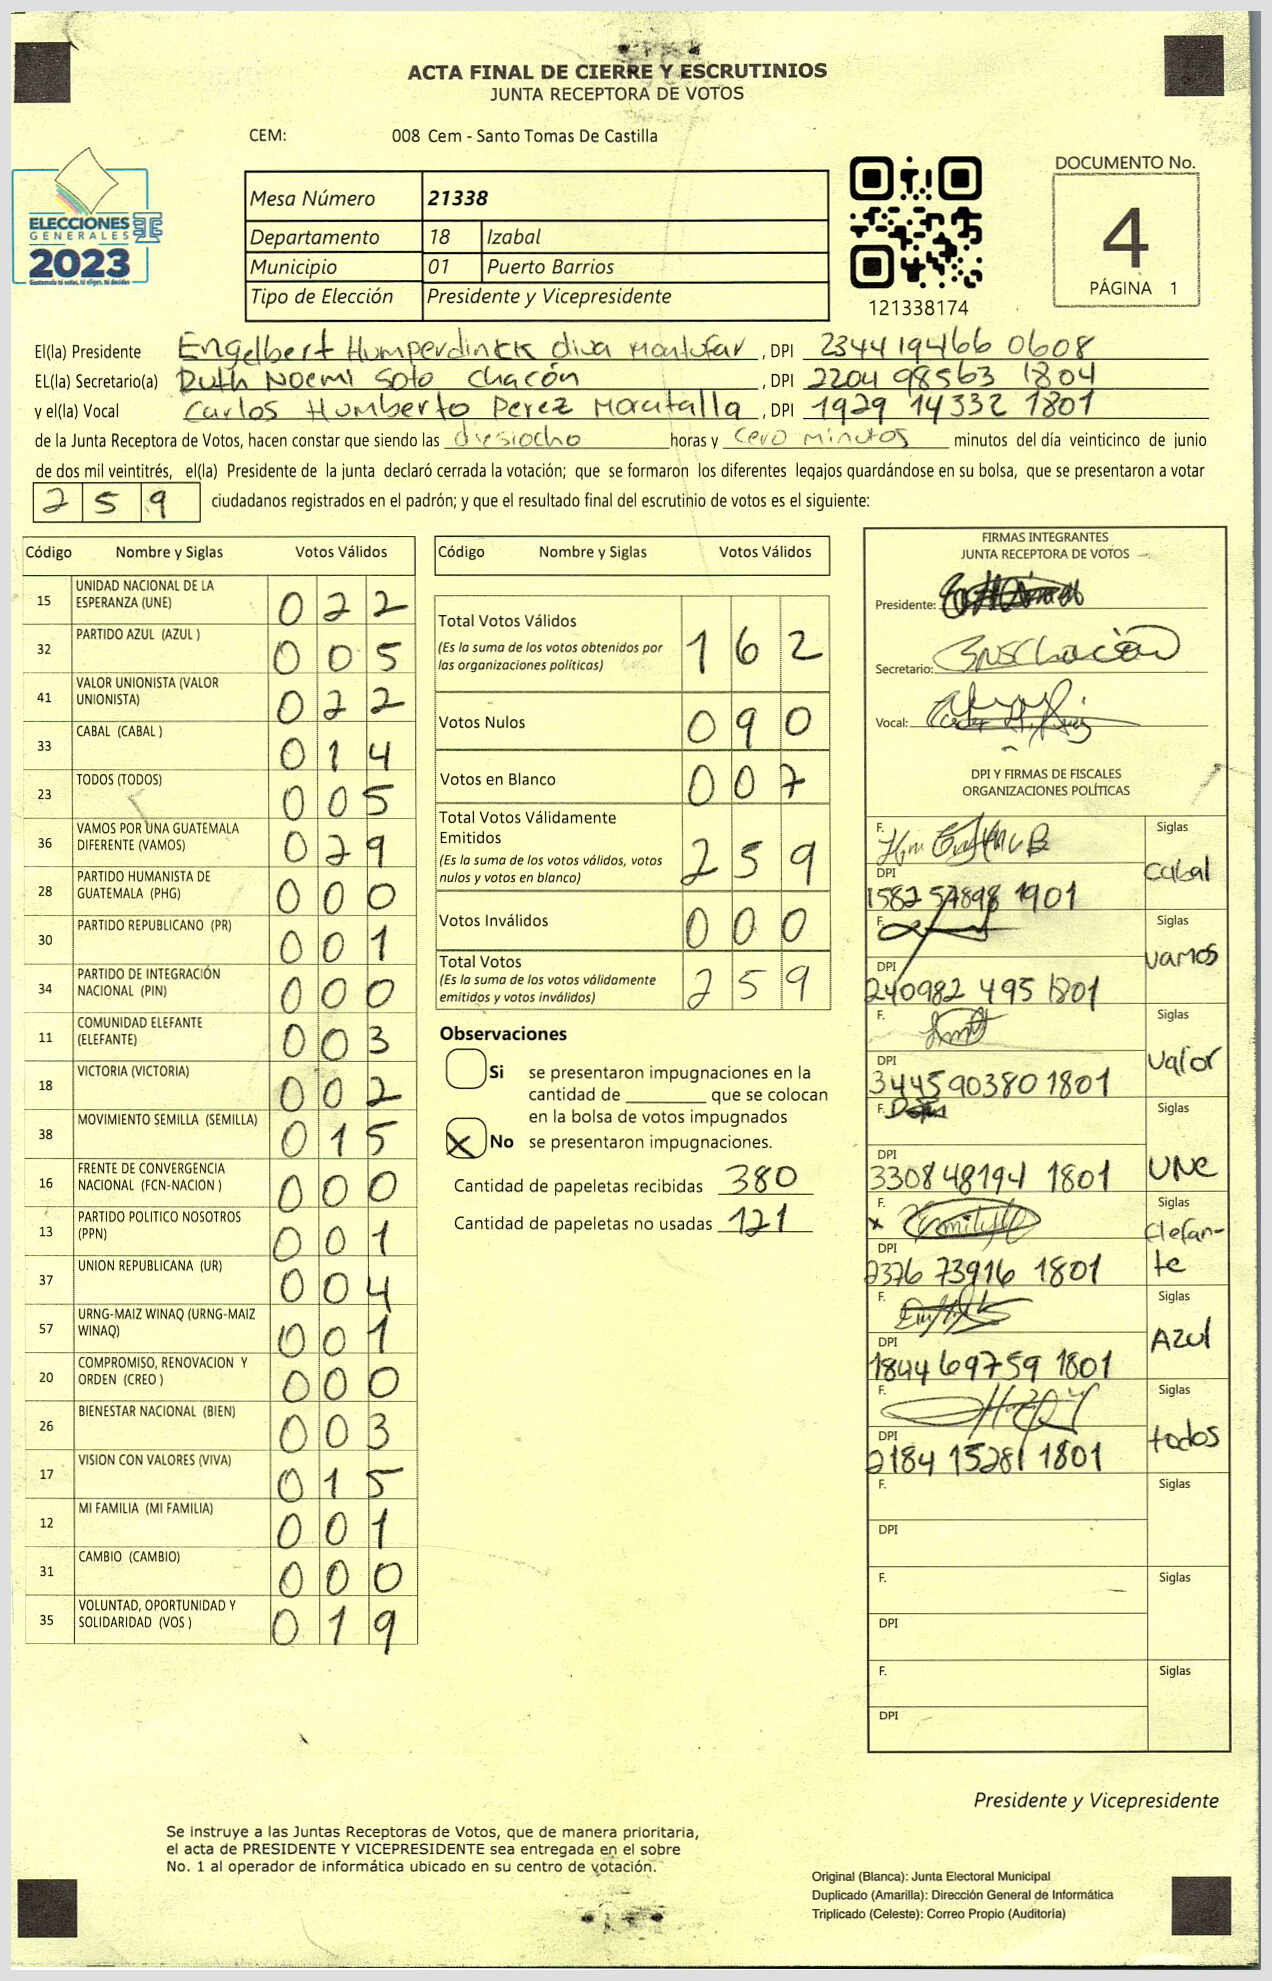 ACTA FINAL DE CIERRE Y ESCRUTINIOS
JUNTA RECEPTORA DE VOTOS
CEM: 008 Cem - Santo Tomas De Castilla
ELECCIONES
GENERALES
2023
Guatemala tú votas, tú eliges, tú decides
Mesa Número 21338
Departamento 18 Izabal
Municipio 01 Puerto Barrios
Tipo de Elección Presidente y Vicepresidente
121338174
DOCUMENTO No.
4
PÁGINA 1
El(la) Presidente Engelbert Humperdinck Oliva Montufar, DPI 234419466 0608
EL(la) Secretario(a) Ruth Noemi Soto Chacón, DPI 2204 98563 1804
y el(la) Vocal Carlos Humberto Perez Moratalla, DPI 1929 14332 1801
de la Junta Receptora de Votos, hacen constar que siendo las diesiocho horas y cero minutos minutos del día veinticinco de junio
de dos mil veintitrés, el(la) Presidente de la junta declaró cerrada la votación; que se formaron los diferentes legajos guardándose en su bolsa, que se presentaron a votar
259 ciudadanos registrados en el padrón; y que el resultado final del escrutinio de votos es el siguiente:
Código Nombre y Siglas Votos Válidos
15 UNIDAD NACIONAL DE LA ESPERANZA (UNE) 022
32 PARTIDO AZUL (AZUL ) 005
41 VALOR UNIONISTA (VALOR UNIONISTA) 022
33 CABAL (CABAL ) 014
23 TODOS (TODOS) 005
36 VAMOS POR UNA GUATEMALA DIFERENTE (VAMOS) 029
28 PARTIDO HUMANISTA DE GUATEMALA (PHG) 000
30 PARTIDO REPUBLICANO (PR) 001
34 PARTIDO DE INTEGRACIÓN NACIONAL (PIN) 000
11 COMUNIDAD ELEFANTE (ELEFANTE) 003
18 VICTORIA (VICTORIA) 002
38 MOVIMIENTO SEMILLA (SEMILLA) 015
16 FRENTE DE CONVERGENCIA NACIONAL (FCN-NACION ) 000
13 PARTIDO POLITICO NOSOTROS (PPN) 001
37 UNION REPUBLICANA (UR) 004
57 URNG-MAIZ WINAQ (URNG-MAIZ WINAQ) 001
20 COMPROMISO, RENOVACION Y ORDEN (CREO ) 000
26 BIENESTAR NACIONAL (BIEN) 003
17 VISION CON VALORES (VIVA) 015
12 MI FAMILIA (MI FAMILIA) 001
31 CAMBIO (CAMBIO) 000
35 VOLUNTAD, OPORTUNIDAD Y SOLIDARIDAD (VOS ) 019
Código Nombre y Siglas Votos Válidos
Total Votos Válidos 162
(Es la suma de los votos obtenidos por
las organizaciones políticas)
Votos Nulos 090
Votos en Blanco 007
Total Votos Válidamente
Emitidos 259
(Es la suma de los votos válidos, votos
nulos y votos en blanco)
Votos Inválidos 000
Total Votos 259
(Es la suma de los votos válidamente
emitidos y votos inválidos)
Observaciones
Si se presentaron impugnaciones en la
cantidad de ________ que se colocan
en la bolsa de votos impugnados
X No se presentaron impugnaciones.
Cantidad de papeletas recibidas 380
Cantidad de papeletas no usadas 121
FIRMAS INTEGRANTES
JUNTA RECEPTORA DE VOTOS
Presidente:
Secretario:
Vocal:
DPI Y FIRMAS DE FISCALES
ORGANIZACIONES POLÍTICAS
F. Siglas
DPI Cabal
1582 57898 1901
F. Siglas
DPI vamos
240982 495 1801
F. Siglas
DPI Valor
344590380 1801
F. Siglas
DPI UNE
3308 48194 1801
F. Siglas
DPI Elefan-
te
2376 73916 1801
F. Siglas
DPI AZUl
1844 69759 1801
F. Siglas
DPI todos
2184 15281 1801
F. Siglas
DPI
F. Siglas
DPI
F. Siglas
DPI
Presidente y Vicepresidente
Se instruye a las Juntas Receptoras de Votos, que de manera prioritaria,
el acta de PRESIDENTE Y VICEPRESIDENTE sea entregada en el sobre
No. 1 al operador de informática ubicado en su centro de votación.
Original (Blanca): Junta Electoral Municipal
Duplicado (Amarilla): Dirección General de Informática
Triplicado (Celeste): Correo Propio (Auditoría)